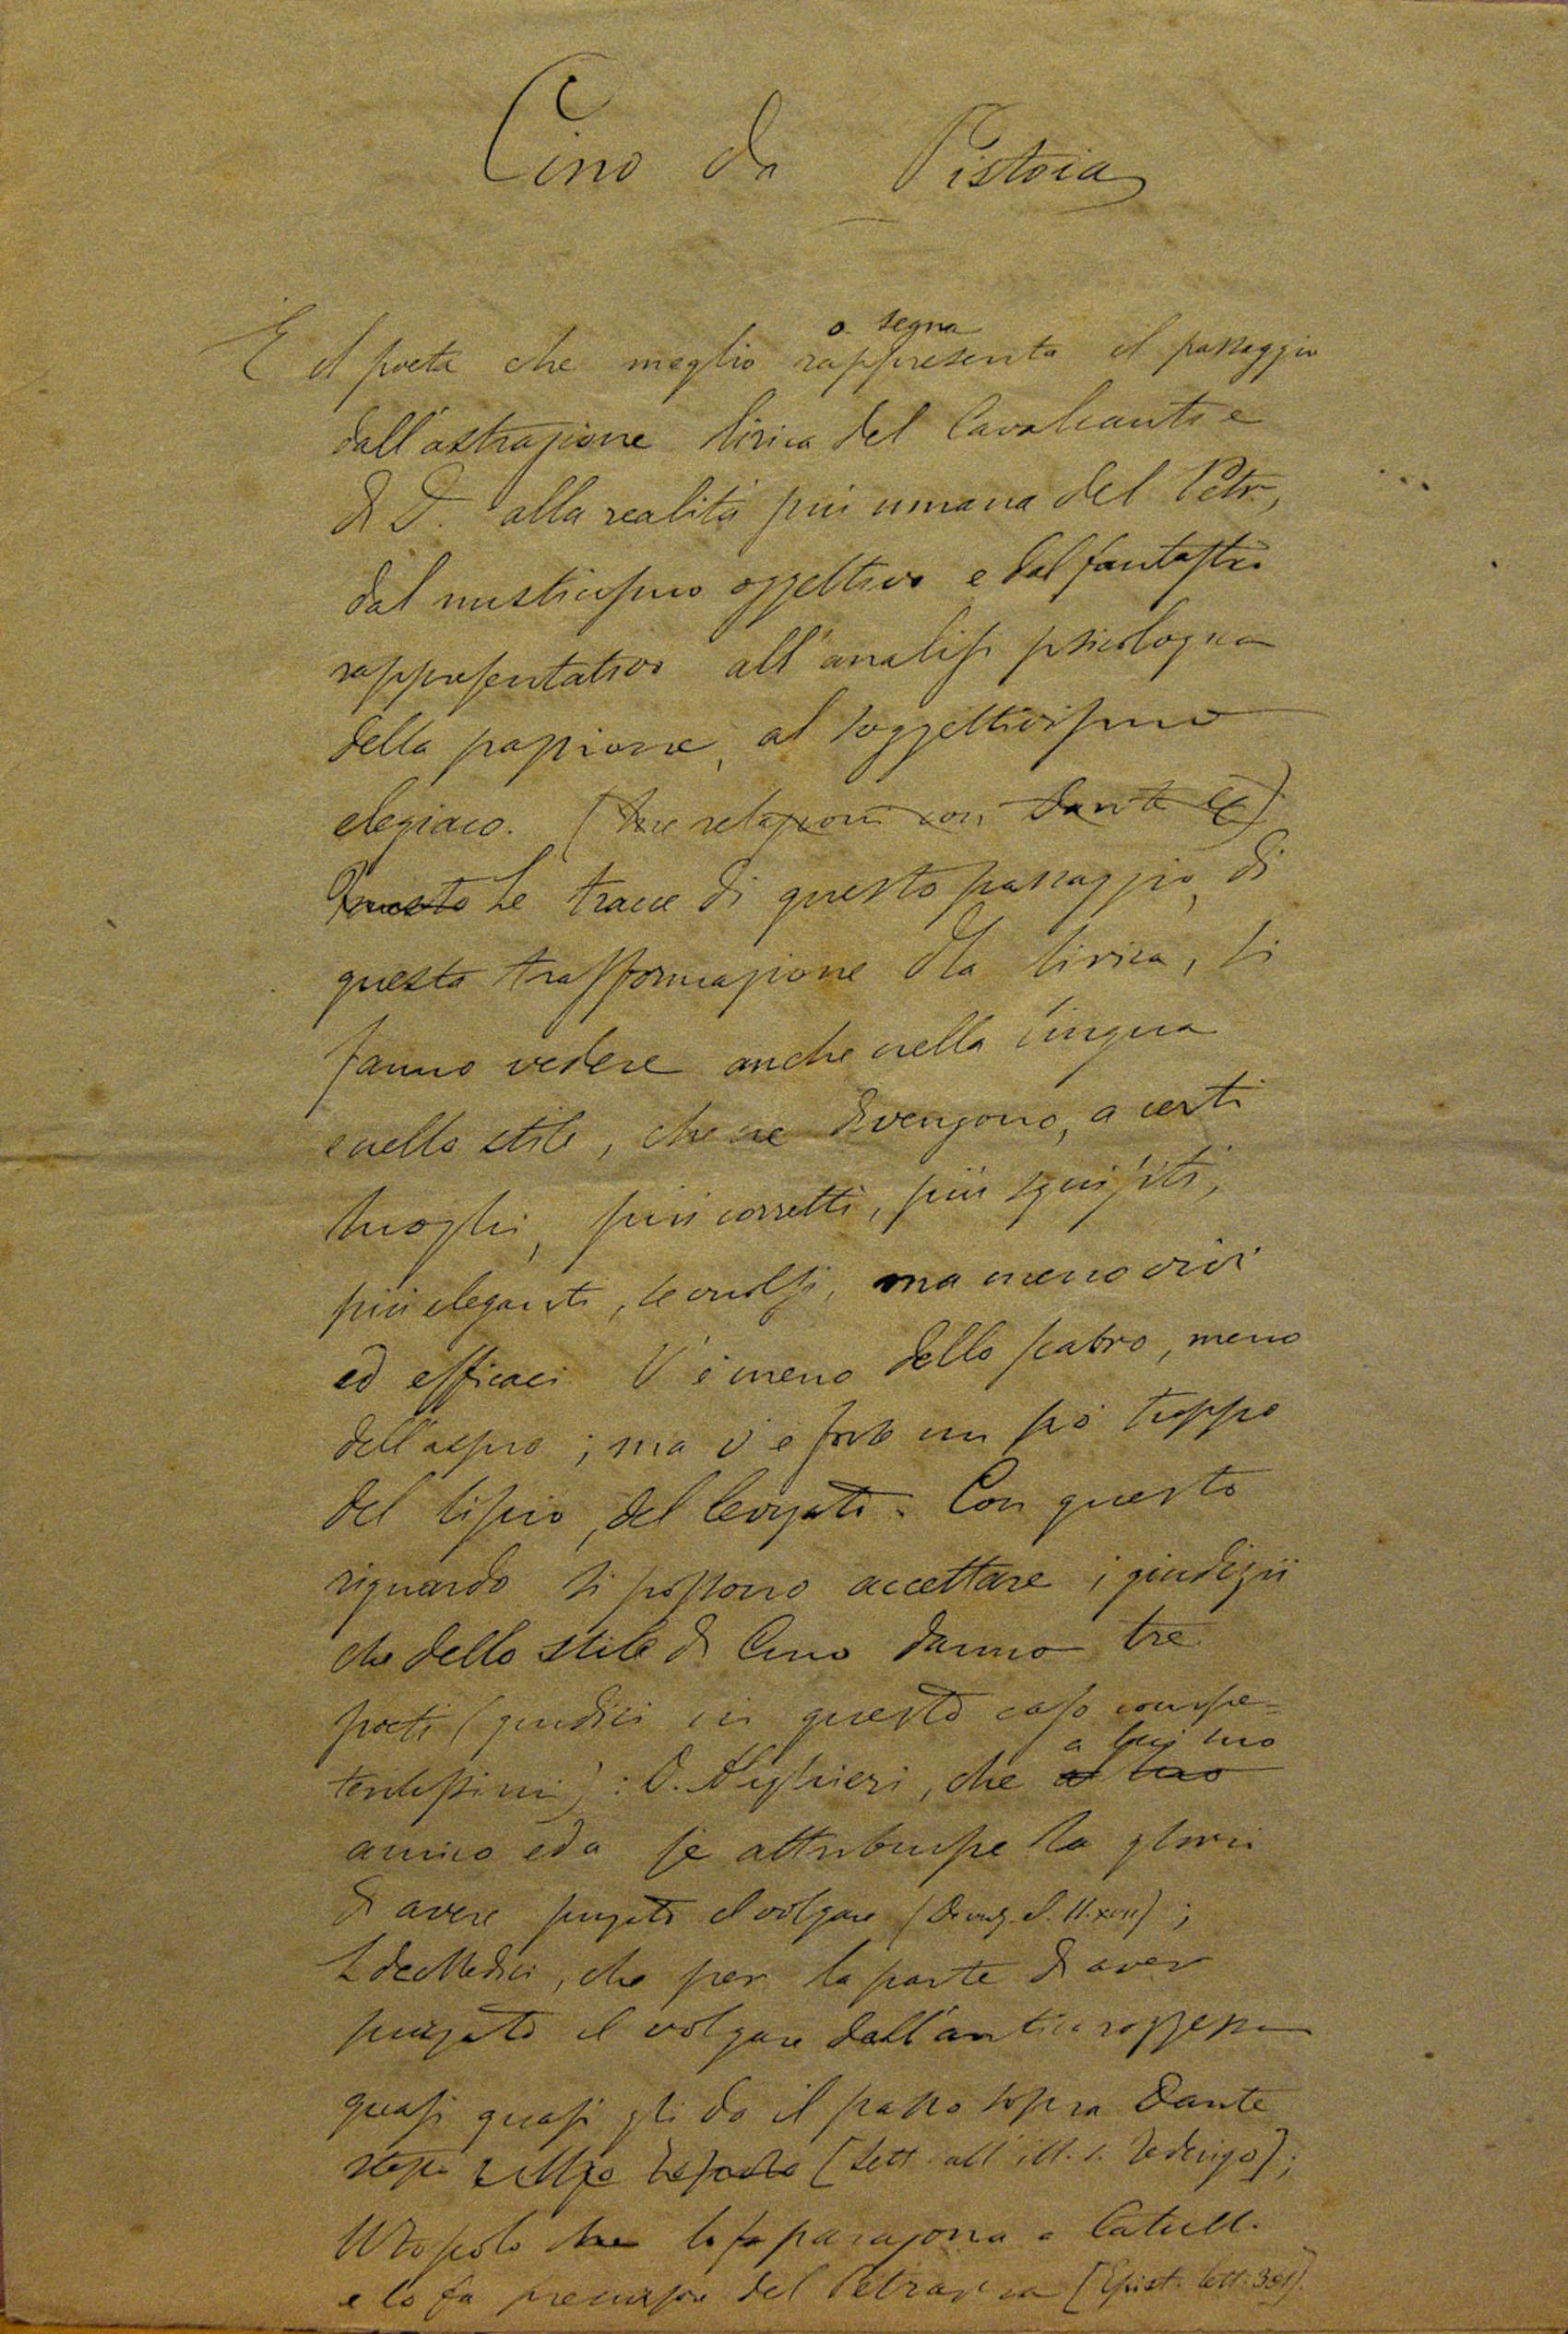 Cino da Pistoia
o segna
È il poeta che meglio rappresenta il passaggio
dall'astrazione lirica del Cavalcanti e
di D. alla realità più umana del Petr.,
dal misticismo oggettivo e dal fantastico
rappresentativo all'analisi psicologica
della passione, al soggettivismo
elegiaco. (Sue relazioni con Dante &)
Questo Le tracce di questo passaggio, di
questa trasformazione dla lirica, si
fanno vedere anche nella lingua
e nello stile, che ne divengono, a certi
luoghi, più corretti, più squisiti,
più eleganti, se vuolsi, ma meno vivi
ed efficaci V'è meno dello scabro, meno
dell'aspro; ma v'è forse un pò troppo
del liscio, del levigato. Con questo
riguardo si possono accettare i giudizii
che dello stile di Cino danno tre
poeti (giudici in questo caso compe=
a lui suo
tentissimi): D. Alighieri, che al suo
amico ed a se attribuisce la gloria
di avere purgato il volgare (De vulg. el. II. XVII);
L de Medici, che per la parte di aver
purgato il volgare dall'antica rozzezza
quasi quasi gli da il passo sopra Dante
stesso [Lett. all'ill. s. Federigo];
U Foscolo che lo paragona a Catull.
e lo fa precursore del Petrarca [Epist. lett. 381].